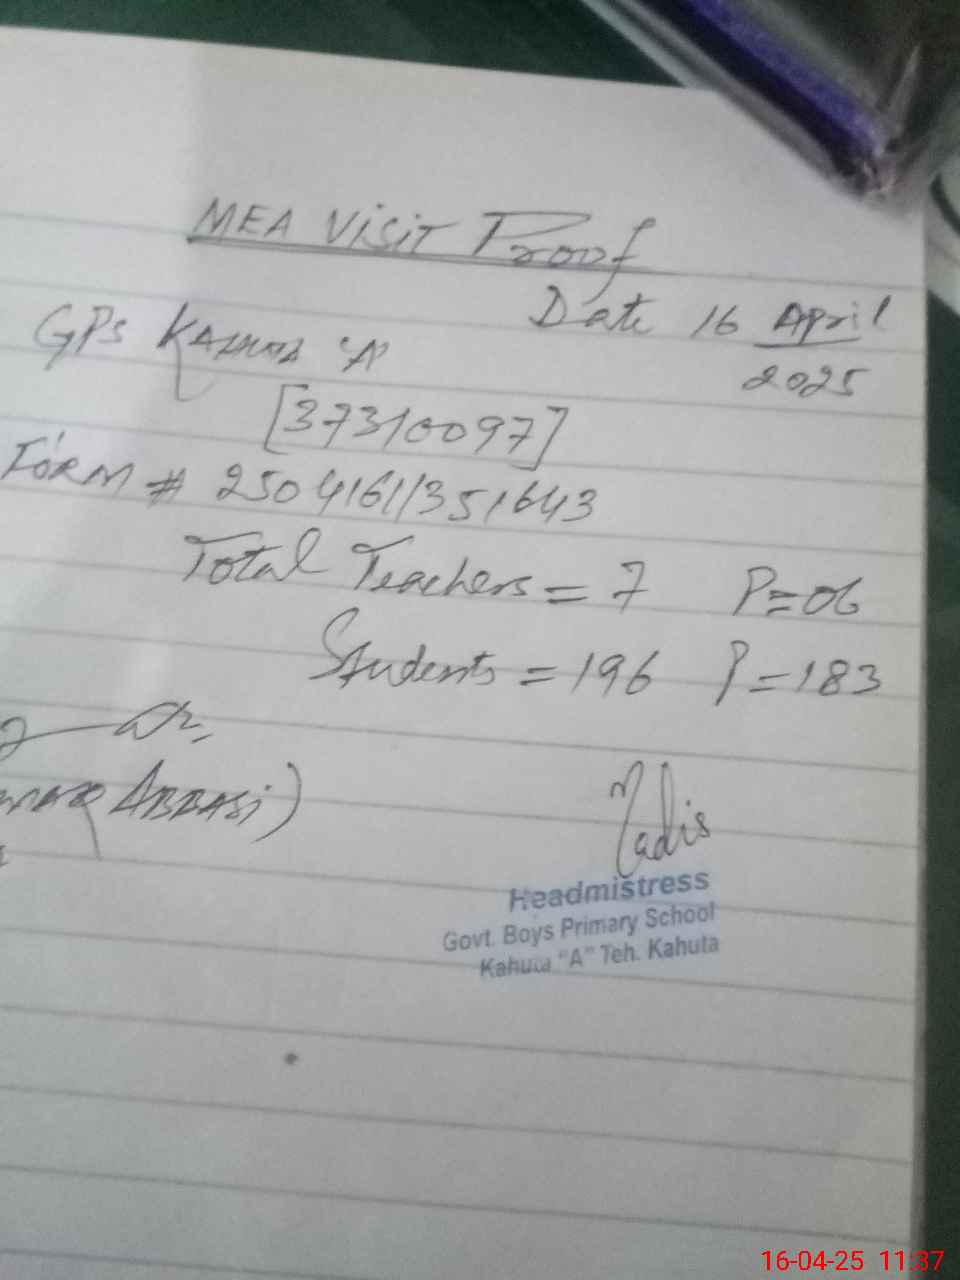 MEA Visit Proof
Date 16 April
2025
GPS KAHUTA 'A'
[37310097]
FORM # 25041611351643
Total Teachers = 7 P=06
Students = 196 P=183
ABBASi)
Nadis
Headmistress
Govt. Boys Primary School
Kahuta "A" Teh. Kahuta
16-04-25 11:37